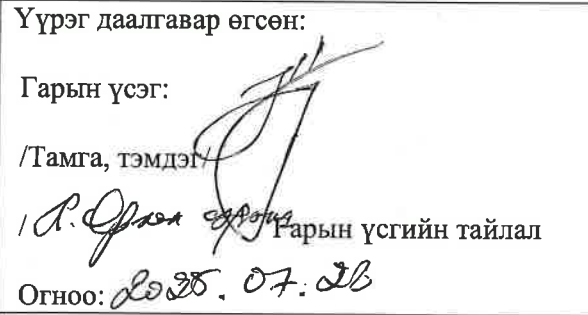 Үүрэг даалгавар өгсөн:
Гарын үсэг:
/Тамга, тэмдэг/
/ Гарын үсгийн тайлал
Огноо: 07.